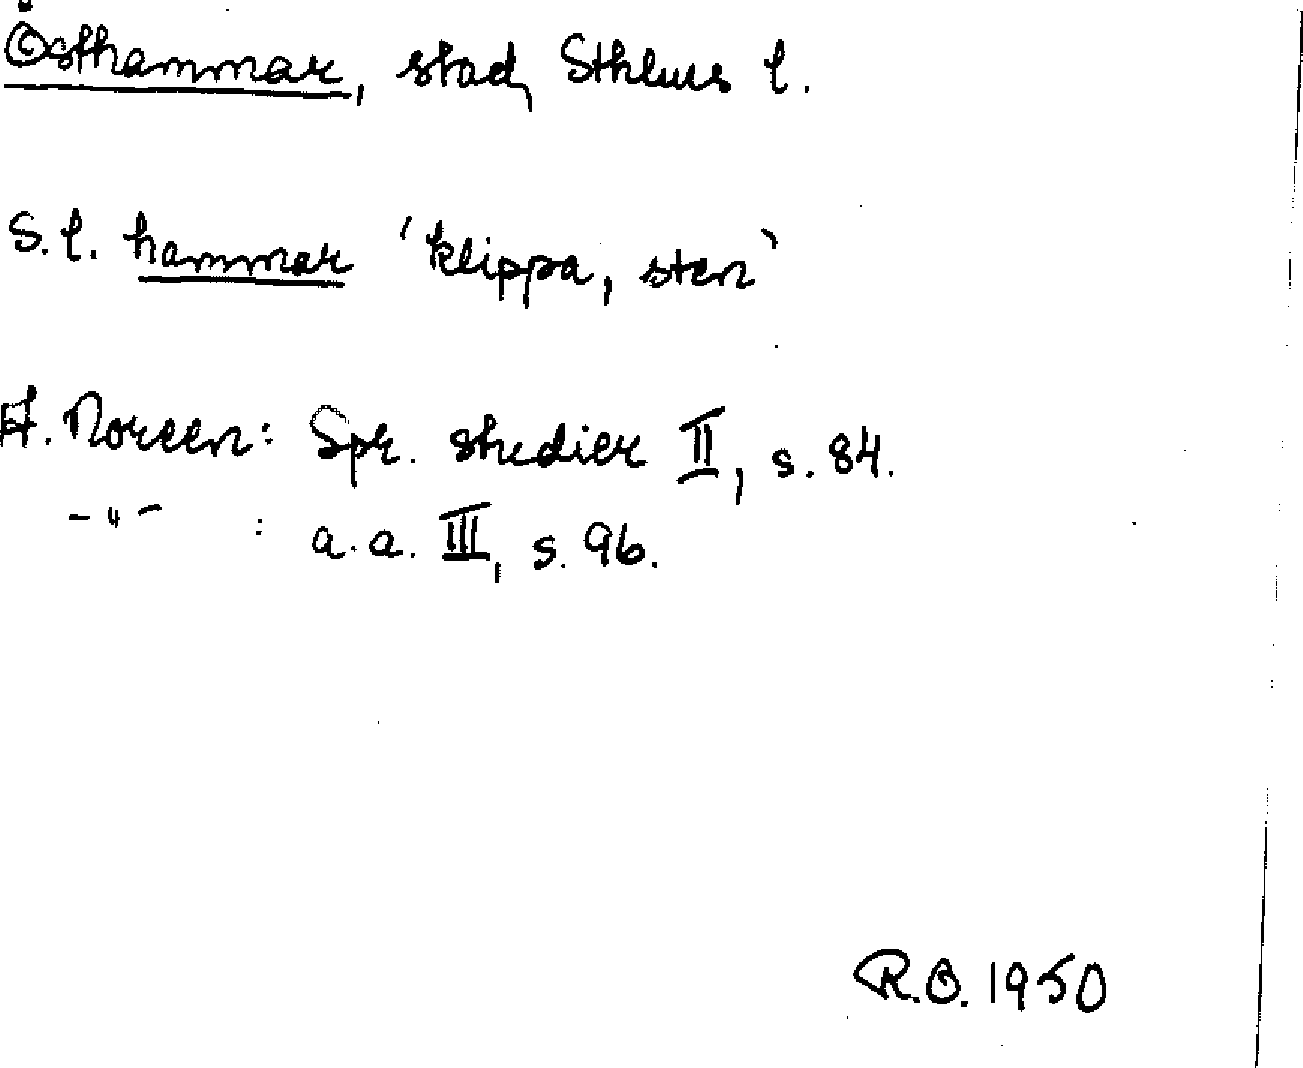 Östhammar, stad, Sthlms l.
S. l. hammar 'klippa, sten'
A. Noreen: Spr. studier II, s. 84.
-"- : a.a. III, s. 96.
R.O. 1950